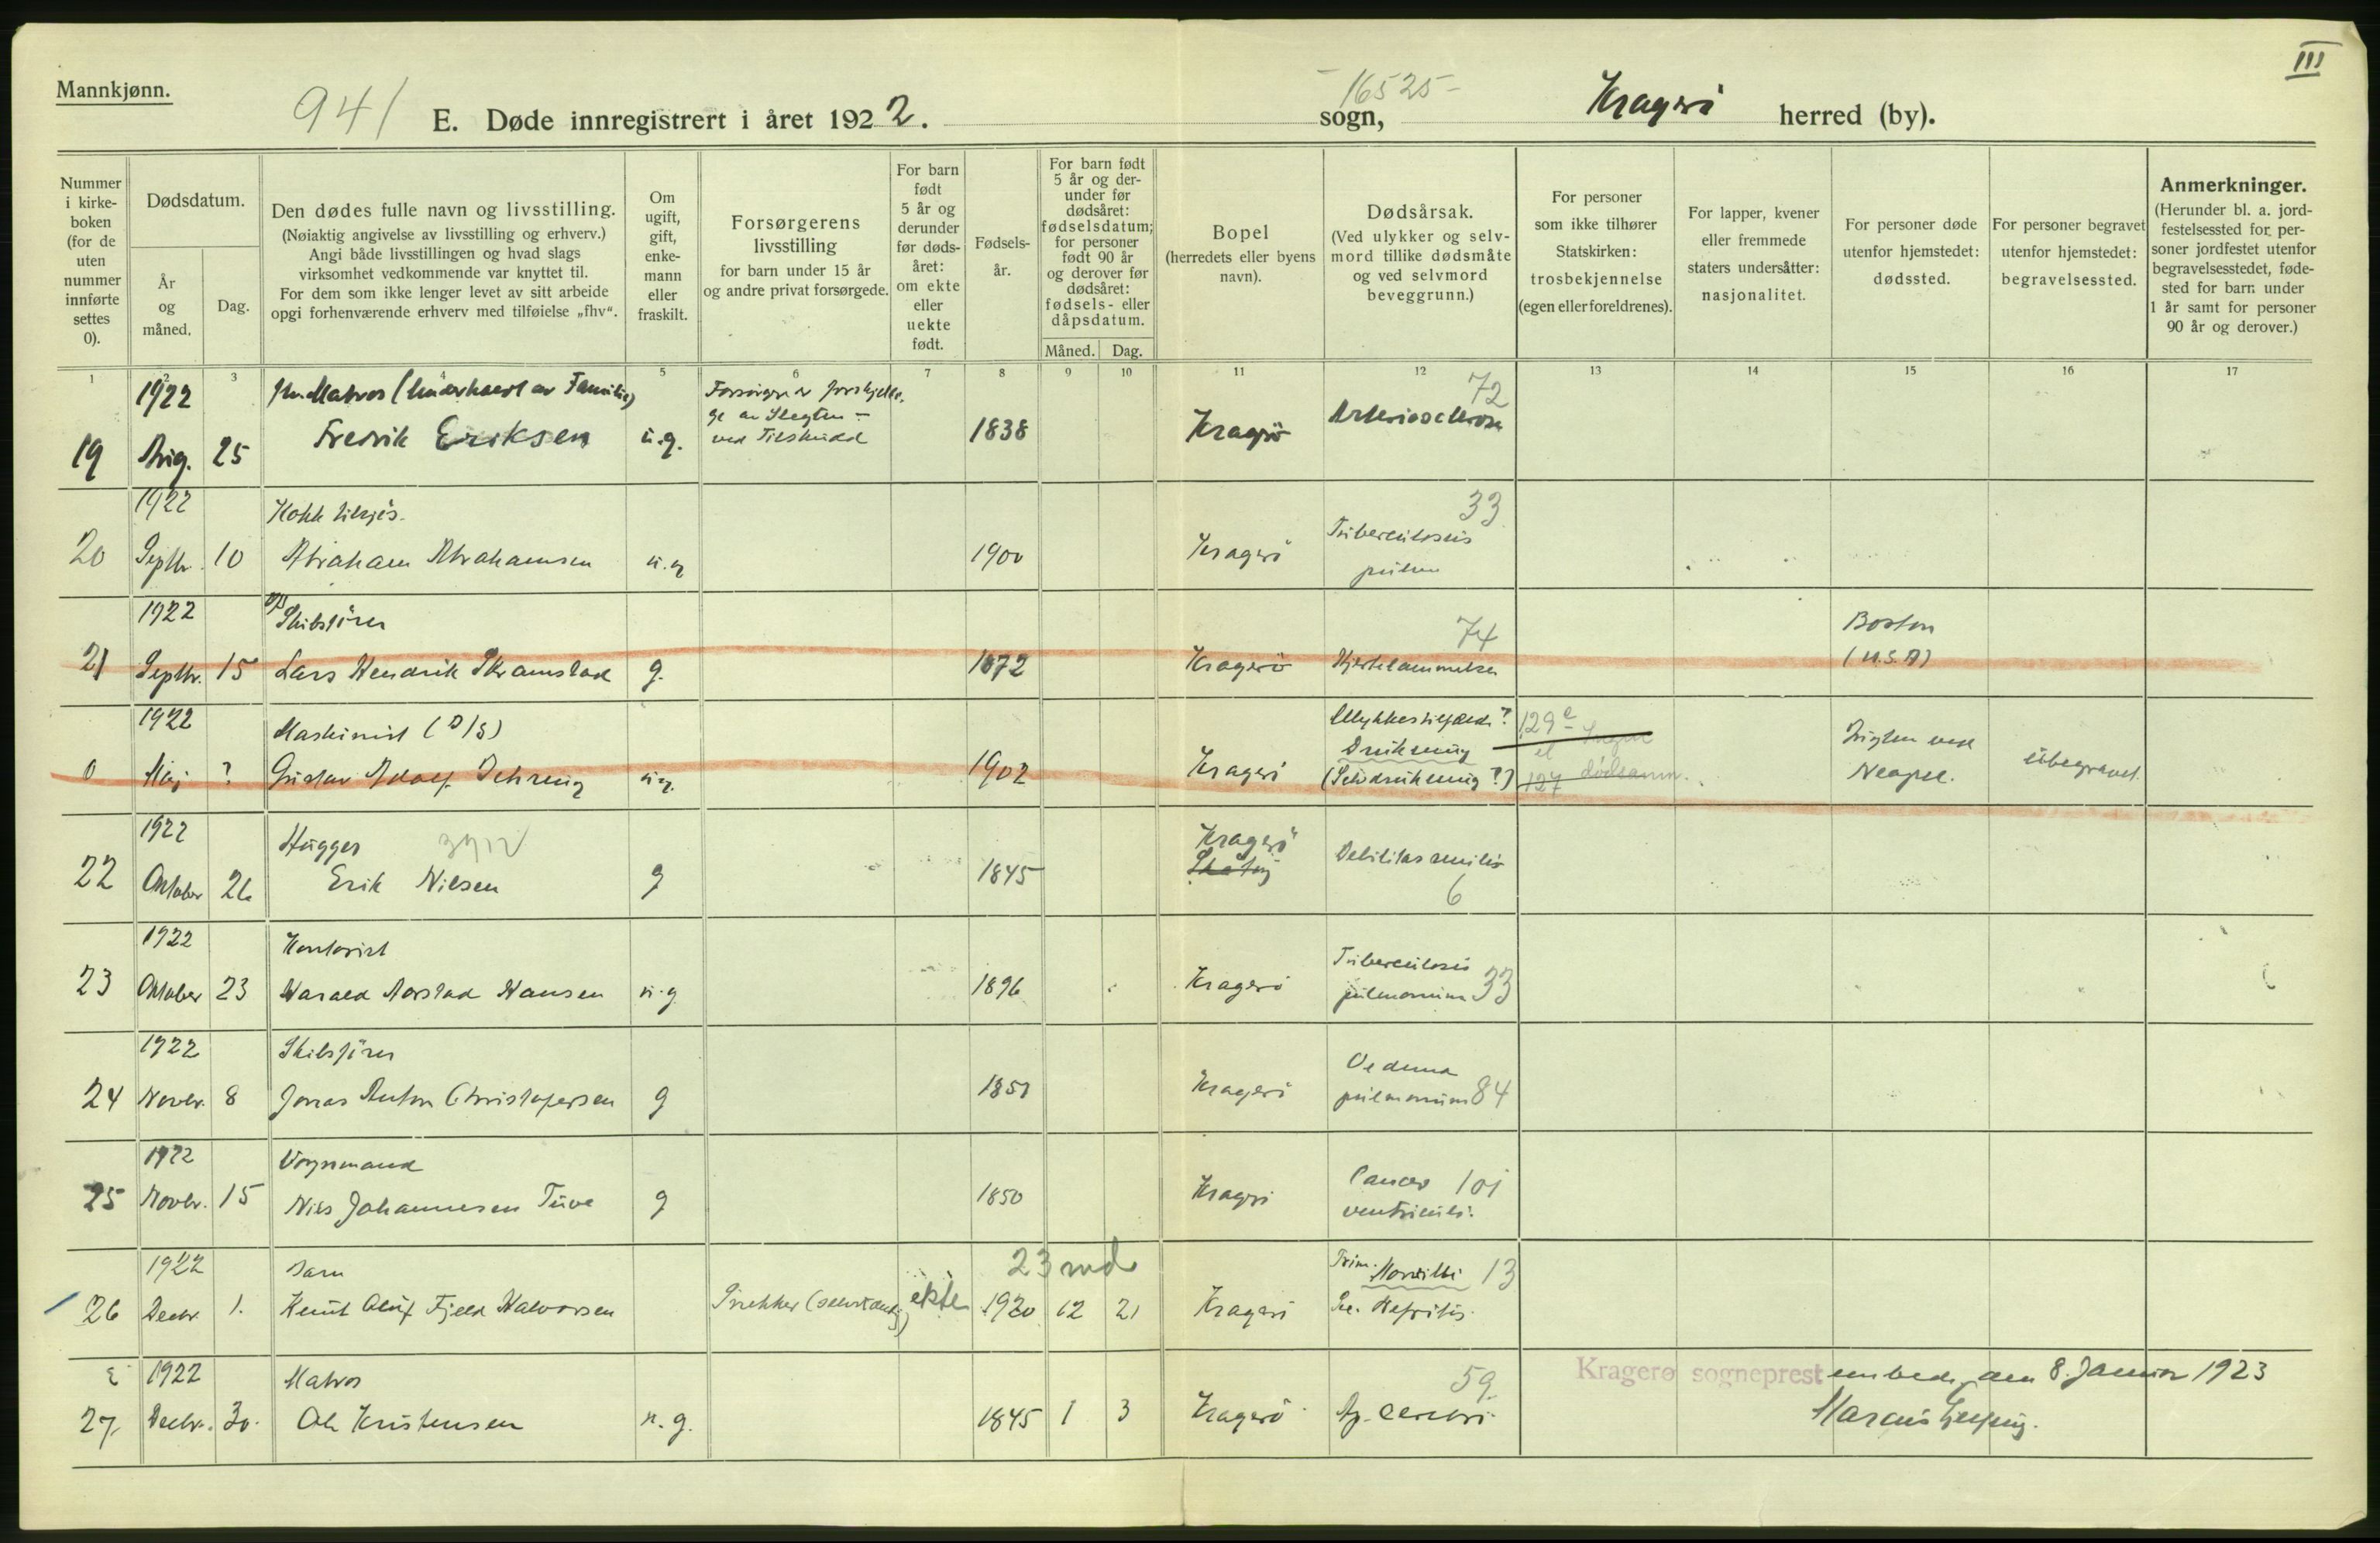 III
Mannkjønn.
941
E. Døde innregistrert i året 1922.
16525
sogn,
Kragerö herred (by).
Nummer i kirkeboken (for de uten nummer innførte settes 0).
Dødsdatum.
År og måned.
Dag.
Den dødes fulle navn og livsstilling.
(Nøiaktig angivelse av livsstilling og erhverv.)
Angi både livsstillingen og hvad slags
virksomhet vedkommende var knyttet til.
For dem som ikke lenger levet av sitt arbeide
opgi forhenværende erhverv med tilføielse „fhv“.
Om ugift, gift, enkemann eller fraskilt.
Forsørgerens livsstilling
for barn under 15 år
og andre privat forsørgede.
For barn født 5 år og derunder før dødsåret: om ekte eller uekte født.
Fødselsår.
For barn født 5 år og derunder før dødsåret: fødselsdatum; for personer født 90 år og derover før dødsåret: fødsels- eller dåpsdatum.
Måned. Dag.
Bopel
(herredets eller byens navn).
Dødsårsak.
(Ved ulykker og selvmord tillike dødsmåte og ved selvmord beveggrunn.)
For personer som ikke tilhører Statskirken:
trosbekjennelse
(egen eller foreldrenes).
For lapper, kvener eller fremmede staters undersåtter:
nasjonalitet.
For personer døde utenfor hjemstedet:
dødssted.
For personer begravet utenfor hjemstedet:
begravelsessted.
Anmerkninger.
(Herunder bl. a. jordfestelsessted for personer jordfestet utenfor begravelsesstedet, fødested for barn under 1 år samt for personer 90 år og derover.)
1 2 3 4 5 6 7 8 9 10 11 12 13 14 15 16 17
1922 Matros (Underholdt av Familie) 72
19 Aug. 25 Fredrik Eriksen u.g. 1838 Kragerö Arteriosclerose
ved Tilskudd
1922 Kokk tilsjös. 33
20 Septbr. 10 Abraham Abrahamsen u.g 1900 Kragerö Tuberculosis
pulm
1922 Skibsförer 74 Boston
21 Septbr. 15 Lars Hendrik Skramstad g. 1872 Kragerö Hjertelammelse (U.S.A)
1922 Maskinist (D/S) Ulykkestilfælde? 129
Drukning
0 Maj ? Gustav Adolf Dehring u.g. 1902 Kragerö (Selvdrukning?) 127 Neapel. ubegravet.
1922 Hugger Kragerö
22 Oktober 26 Erik Nilsen g 1845 Skåtöy Debilitas senilis
6
1922 Kontorist Tuberculosis
23 Oktober 23 Harald Aarstad Hansen u.g 1896 Kragerö pulmonum 33
1922 Skibsförer Oedema
24 Novbr. 8 Jonas Anton Christofersen g 1851 Kragerö pulmonum 84
1922 Vognmand Cancer 101
25 Novbr. 15 Nils Johannesen Tuve g 1850 Kragerö ventriculi.
1922 Barn 23 md Prim. Morbilli 13
26 Decbr. 1. Knut Oluf Fjeld Halvorsen Snekker (selvstændig) ekte 1920 12 21 Kragerö Sec. Nefritis.
1922 Matros 59
27 Decbr. 30. Ole Kristensen u.g. 1845 1 3 Kragerö Ap. cerebri.
Kragerø sogneprestembede, den 8. Januar 1923
Marcus